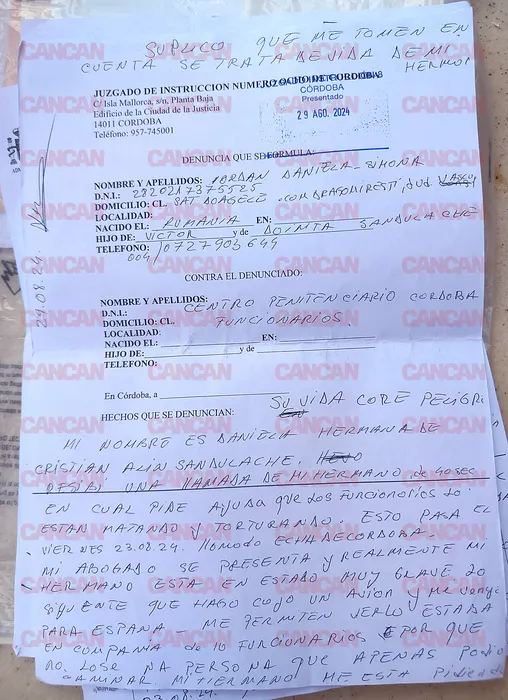 SUPLICO QUE ME TOMEN EN
CUENTA SE TRATA DE VIDA DE MI
HERMO
JUZGADO DE INSTRUCCION NUMERO OCHO DE CORDOBA
C/ Isla Mallorca, s/n, Planta Baja
Edificio de la Ciudad de la Justicia
14011 CORDOBA
Teléfono: 957-745001
CÓRDOBA
Presentado
29 AGO. 2024
DENUNCIA QUE SE FORMULA:
NOMBRE Y APELLIDOS: IORDAN DANIELA-SIMONA
D.N.I.:
DOMICILIO: CL. SAT DOAGELE, COM DRAGOMIRESTI, Jud. VASLUI
LOCALIDAD:
NACIDO EL: RUMANIA EN:
HIJO DE: VICTOR y de DOINTA SANDULACHE
TELEFONO: 0727903649
004/
CONTRA EL DENUNCIADO:
NOMBRE Y APELLIDOS: CENTRO PENITENCIARIO CORDOBA
D.N.I.:
DOMICILIO: CL. FUNCIONARIOS.
LOCALIDAD:
NACIDO EL: EN:
HIJO DE: y de
TELEFONO:
En Córdoba, a
HECHOS QUE SE DENUNCIAN: SU VIDA CORE PELIGR
MI NOMBRE ES DANIELA HERMANA DE
CRISTIAN ALIN SANDULACHE.
UNA LLAMADA DE MI HERMANO, de 40 sec
EN CUAL PIDE AYUDA que LOS FUNCIONARIOS LO
ESTAN MATANDO y TORTURANDO. ESTO PASA EL
VIERNES 23.08.24.
MI ABOGADO SE PRESENTA y REALMENTE MI
HERMANO ESTA EN ESTADO MUY GRAVE LO
SIGUIENTE QUE HAGO COJO UN AVION y ME vengo
PARA ESPAÑA ME PERMITEN VERLO ESTABA
EN COMPANIA de 10 FUNCIONARIOS POR QUE
NO LO SE NA PERSONA QUE APENAS PODIO
CAMINAR MI HERMANO ME ESTA Pidiendo
29.08.24
CANCAN